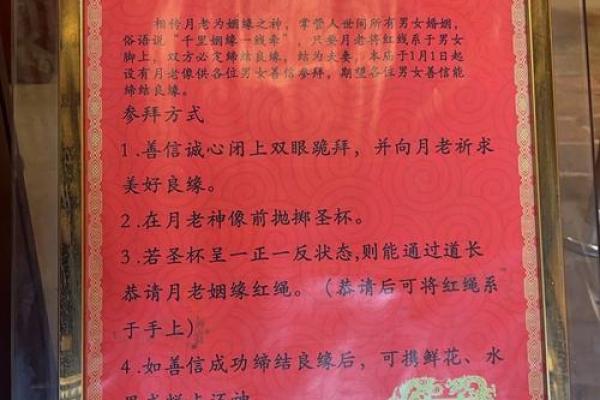 相传月老为姻缘之神，掌管人世间所有男女婚姻，
俗语说“千里姻缘一线牵”，只要月老将红线系于男女
脚上，双方必定缔结良缘，结为夫妻，本庙于1月1日起
设有月老像供各位男女善信参拜，期望各位男女善信能
缔结良缘。
参拜方式
1.善信诚心闭上双眼跪拜，并向月老祈求
美好良缘。
2.在月老神像前抛掷圣杯。
3.若圣杯呈一正一反状态,则能通过道长
恭请月老姻缘红绳。（恭请后可将红绳系
于手上）
4.如善信成功缔结良缘后，可携鲜花、水